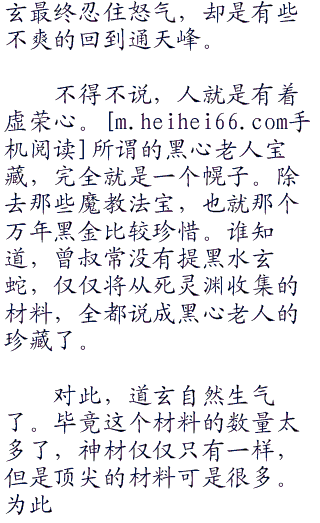 玄最终忍住怒气，却是有些
不爽的回到通天峰。
不得不说，人就是有着
虚荣心。[m.heihei66.com手
机阅读]所谓的黑心老人宝
藏，完全就是一个幌子。除
去那些魔教法宝，也就那个
万年黑金比较珍惜。谁知
道，曾叔常没有提黑水玄
蛇，仅仅将从死灵渊收集的
材料，全都说成黑心老人的
珍藏了。
对此，道玄自然生气
了。毕竟这个材料的数量太
多了，神材仅仅只有一样，
但是顶尖的材料可是很多。
为此